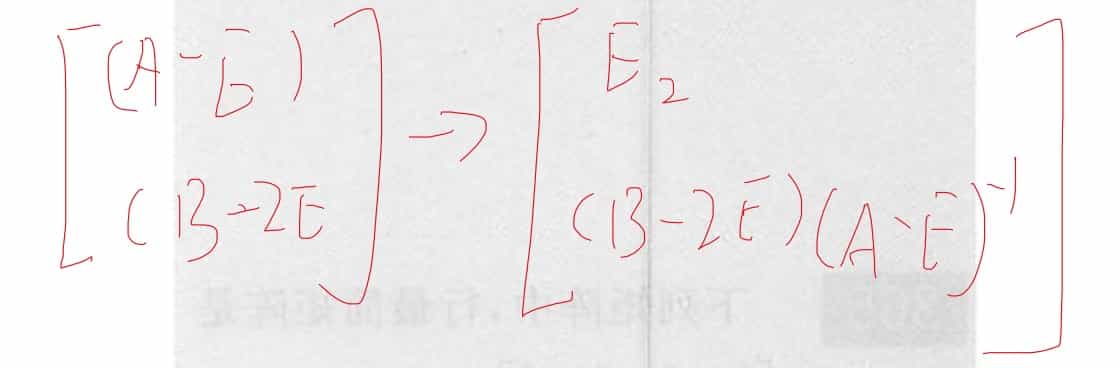 (A-E) → E₂
(B-2E (B-2E)(A-E)⁻¹
下列矩阵中,行最简矩阵是